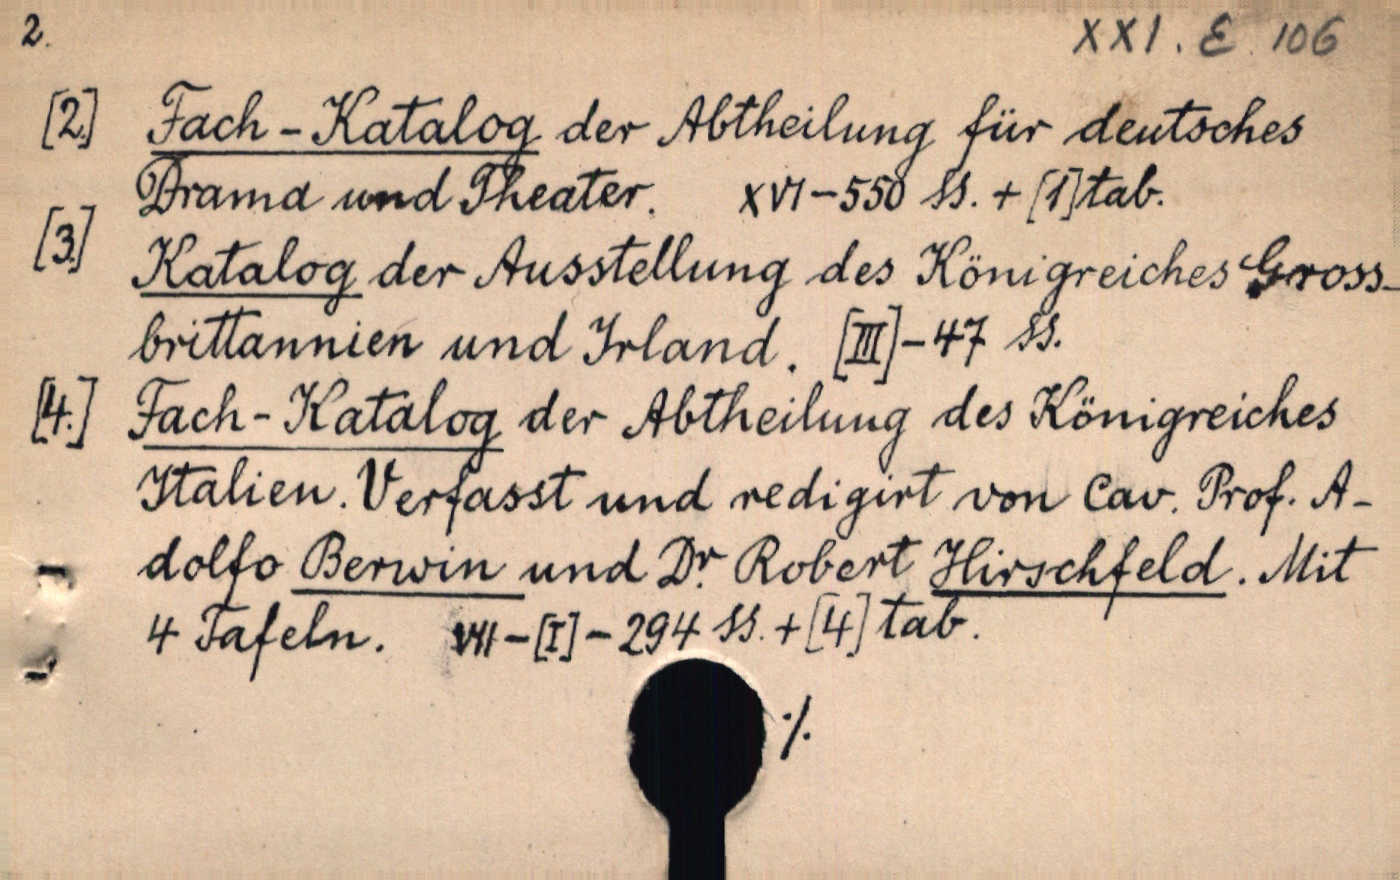 2.
XXI. E. 106
[2.] Fach-Katalog der Abtheilung für deutsches
Drama und Theater. XVI-550 SS. + [1] tab.
[3.] Katalog der Ausstellung des Königreiches Gross-
brittannien und Irland. [III]-47 SS.
[4.] Fach-Katalog der Abtheilung des Königreiches
Italien. Verfasst und redigirt von Cav. Prof. A-
dolfo Berwin und Dr. Robert Hirschfeld. Mit
4 Tafeln. VII-[I]-294 SS. + [4] tab.
./.